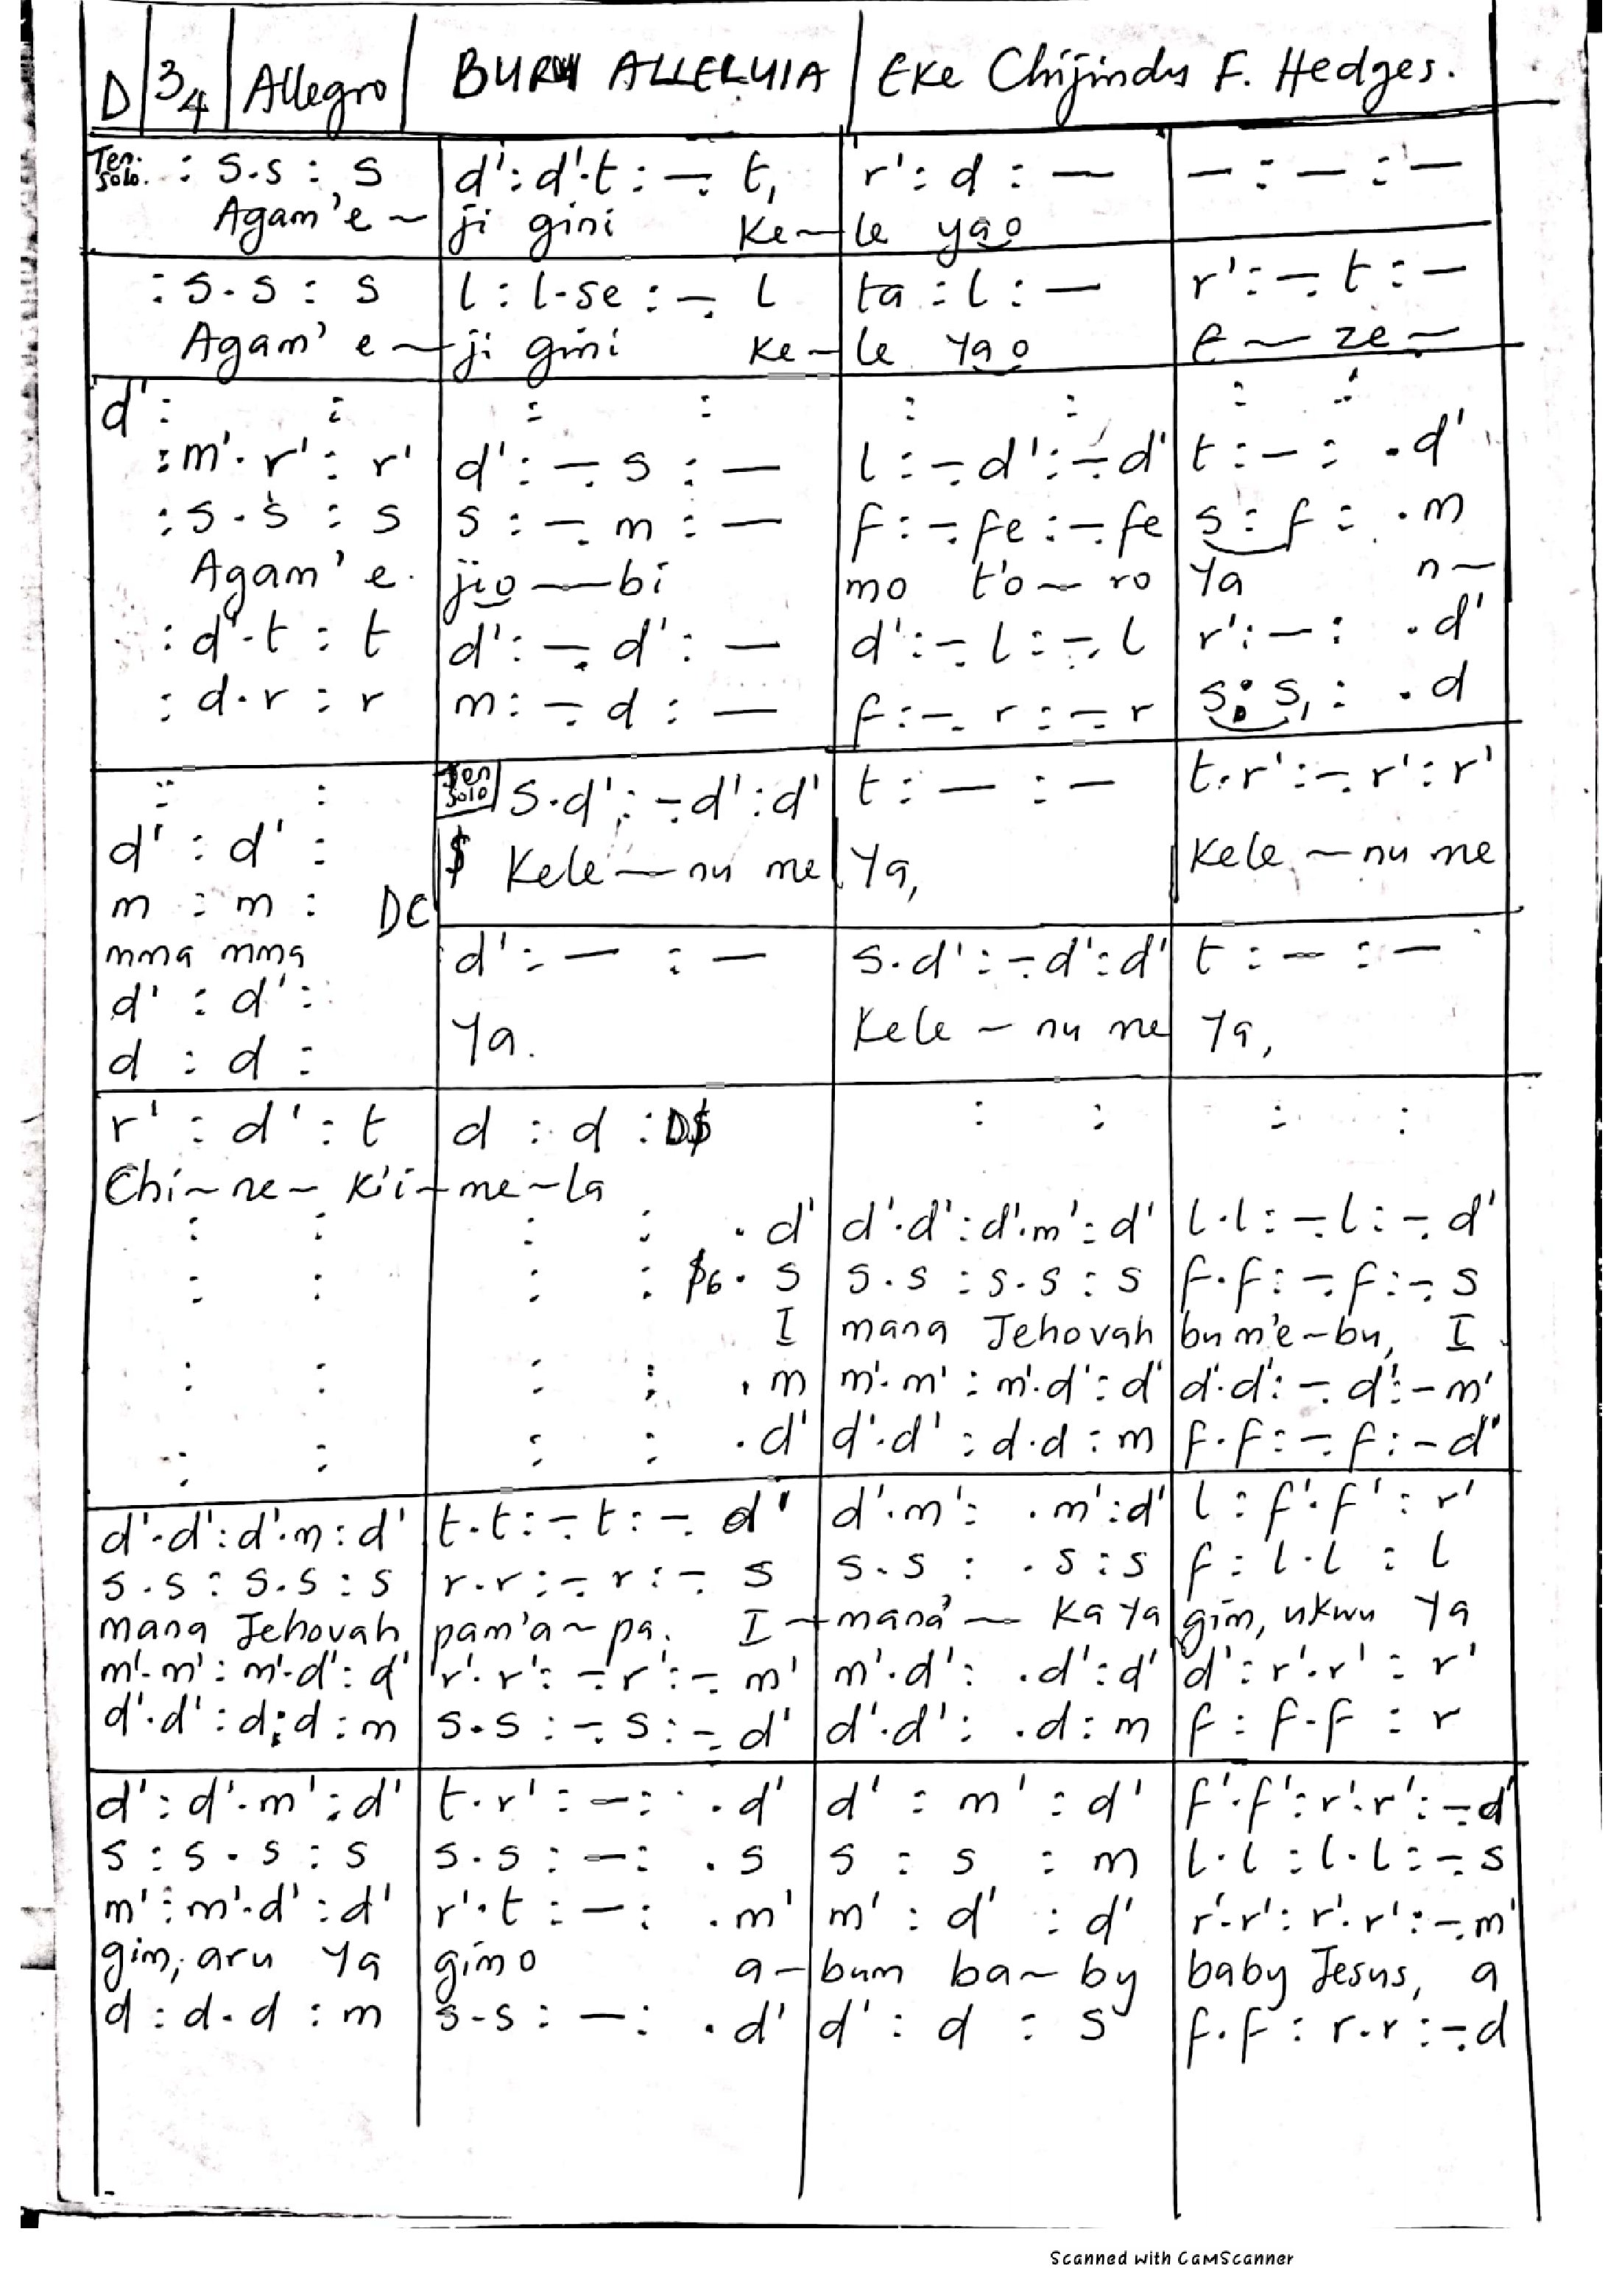 D 3/4 Allegro BURU ALLELUIA Eke Chijindu F. Hedges.
Ten. Solo. : s.s : s | d' : d'.t : -. t, | r' : d : — | — : — : —
Agam'e ~ ji gini Ke~le yao
: s.s : s | l : l.se : -. l | ta : l : — | r' : -. t : —
Agam' e ~ ji gini Ke~le Yao E ~ ze ~
d' : : | : : | : : | : :
: m'. r' : r' | d' : -. s : — | l : -. d' : -. d' | t : — : . d'
: s . s : s | s : -. m : — | f : -. fe : -. fe | s : f : . m
Agam' e. jio — bi mo t'o ~ ro Ya n ~
: d'.t : t | d' : -. d' : — | d' : -. l : -. l | r' : — : . d'
: d.r : r | m : -. d : — | f : -. r : -. r | s : s, : . d
: : | Ten Solo s.d' : -. d' : d' | t : — : — | t.r' : -. r' : r'
d' : d' :
$ Kele — nu me Ya, Kele ~ nu me
m : m : DC
mma mma | d' : — : — | s.d' : -. d' : d' | t : — : —
d' : d' :
Ya. Kele ~ nu me Ya,
d : d :
r' : d' : t | d : d : D$ | : : | : :
Chi~ne~ K'i~me~la
: : | : : . d' | d'.d' : d'.m' : d' | l.l : -. l : -. d'
: : | : : $6 . s | s.s : s.s : s | f.f : -. f : -. s
I mana Jehovah bu m'e~bu, I
: : | : : . m | m'.m' : m'.d' : d' | d'.d' : -. d' : - m'
: : | : : . d' | d'.d' : d.d : m | f.f : -. f : - d'
d'.d' : d'.m : d' | t.t : -. t : -. d' | d'.m' : . m' : d' | l : f'.f' : r'
s.s : s.s : s | r.r : -. r : -. s | s.s : . s : s | f : l.l : l
mana Jehovah pam'a~pa. I ~ mana' ~ Ka Ya gim, ukwu Ya
m'.m' : m'.d' : d' | r'.r' : -. r' : -. m' | m'.d' : . d' : d' | d' : r'.r' : r'
d'.d' : d.d : m | s.s : -. s : -. d' | d'.d' : . d : m | f : f.f : r
d' : d'.m' : d' | t.r' : — : . d' | d' : m' : d' | f'.f' : r'.r' : -. d'
s : s.s : s | s.s : — : . s | s : s : m | l.l : l.l : -. s
m' : m'.d' : d' | r'.t : — : . m' | m' : d' : d' | r'.r' : r'.r' : -. m'
gim, aru Ya gimo a~bum ba~by baby Jesus, a
d : d.d : m | s.s : — : . d' | d' : d : s | f.f : r.r : -. d
Scanned with CamScanner